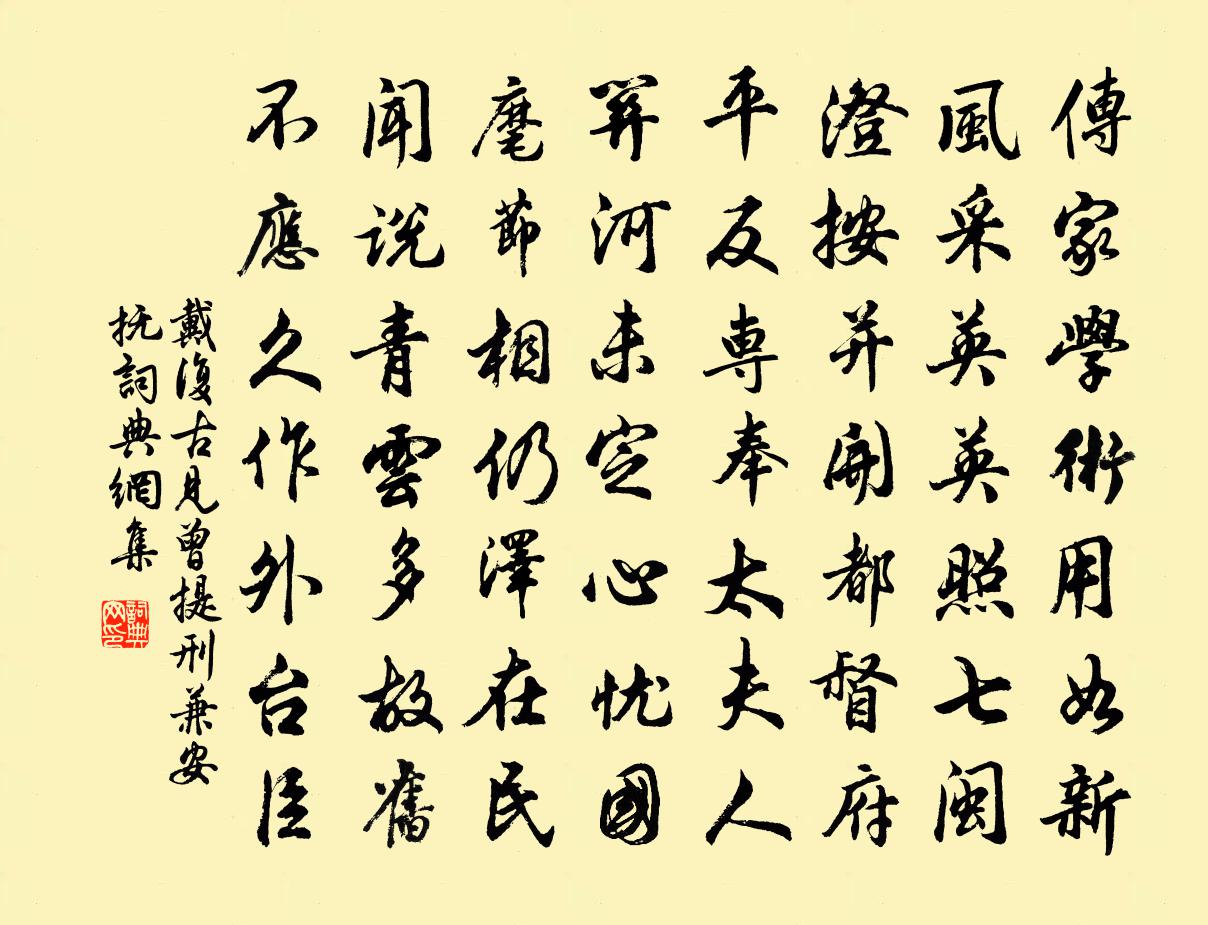 傳家學術用如新
風采英英照七閩
澄按并開都督府
平反專奉太夫人
箕河未定心憂國
麾節相仍澤在民
聞說青雲多故舊
不應久作外台臣
戴復古見曾提刑兼安
撫詞典網集
詞典网印